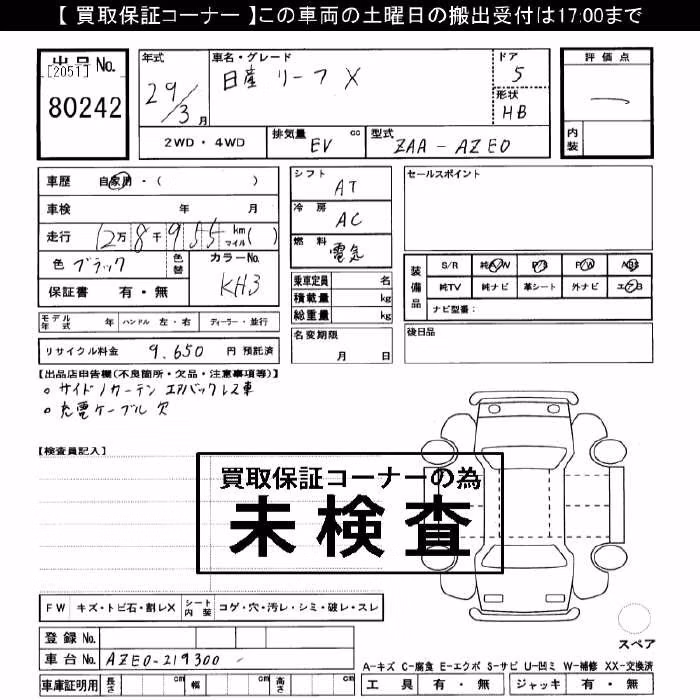 【 買取保証コーナー 】この車両の土曜日の搬出受付は17:00まで
出品No.
[2051]
80242
年式
29/3月
車名・グレード
日産 リーフ X
ドア
5
形状
HB
評価点
—
内装
2WD・4WD
排気量 cc
EV
型式
ZAA-AZE0
車歴 自家用・( )
車検 年 月
走行 12万8千955 km マイル( )
色 ブラック
色替
カラーNo.
KH3
保証書 有・無
シフト
AT
冷房
AC
燃料
電気
乗車定員 名
積載量 kg
総重量 kg
セールスポイント
装備品
S/R 純A/W P/S P/W ABS
純TV 純ナビ 革シート 外ナビ エアB
ナビ型番:
モデル年式 年 ハンドル 左・右 ディーラー・並行
名変期限
月 日
後日品
リサイクル料金 9,650 円 預託済
【出品店申告欄(不良箇所・欠品・注意事項等)】
。サイド/カーテン エアバックレス車
。充電ケーブル 欠
【検査員記入】
買取保証コーナーの為
未検査
FW キズ・トビ石・割レX シート内装 コゲ・穴・汚レ・シミ・破レ・スレ
登録No.
車台No. AZE0-219300
スペア
A-キズ C-腐食 E-エクボ S-サビ U-凹ミ W-補修 XX-交換済
車庫証明用 長さ cm 幅 cm 高さ cm
工具 有・無 ジャッキ 有・無